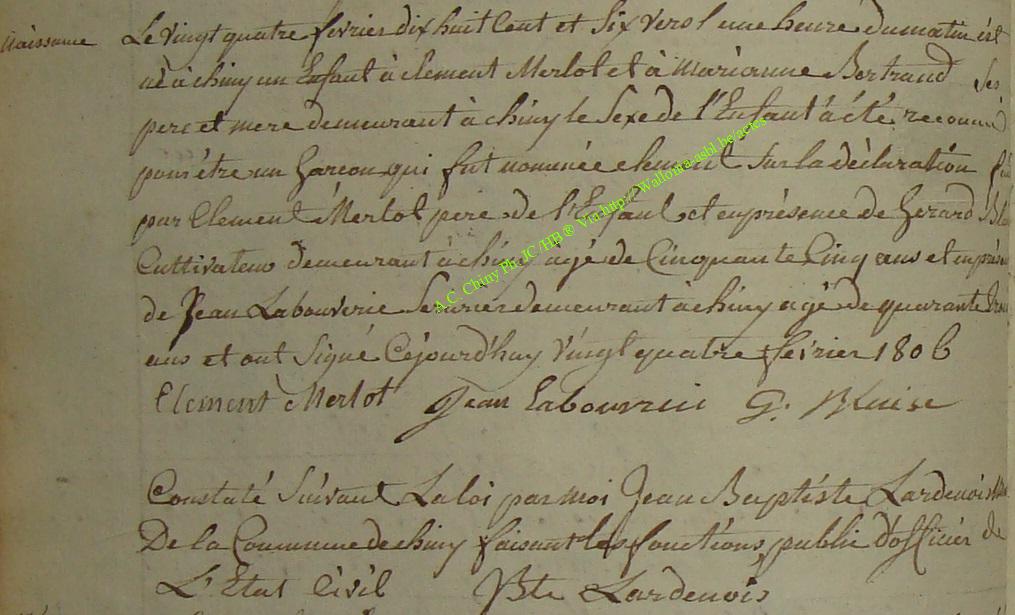 Naissance
Le vingt quatre fevrier dix huit Cent et Six vers l'une heure du matin est
né à chiny un Enfant à clement Merlot et à Marianne Bertrand Ses
pere et mere demeurant à chiny le Sexe de l'Enfant à été reconnu
pour être un Garcon qui fut nommée clement Sur la déclaration
par Clement Merlot pere de l'Enfant et en présence de Gerard
Cultivateur demeurant à chiny agé de Cinquante Cinq ans et en
de Jean Labouverie demeurant à chiny agé de quarante
ans et ont Signé Cejourd'huy vingt quatre fevrier 1806
Clement Merlot Jean Labouvrie G. Blaise
Constaté Suivant La loi par moi Jean Baptiste Lardenois
De la Commune de chiny faisant les fonctions public d'officier de
L'Etat Civil Bte Lardenois
A.C. Chiny Ph JC /HB ® Via http://Wallonia-asbl.be/actes